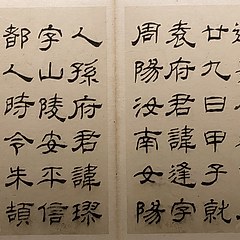 廿九日甲子就
袁府君諱逢字
周陽汝南女陽
人孫府君諱璆
字山陵安平信
都人時令朱頡